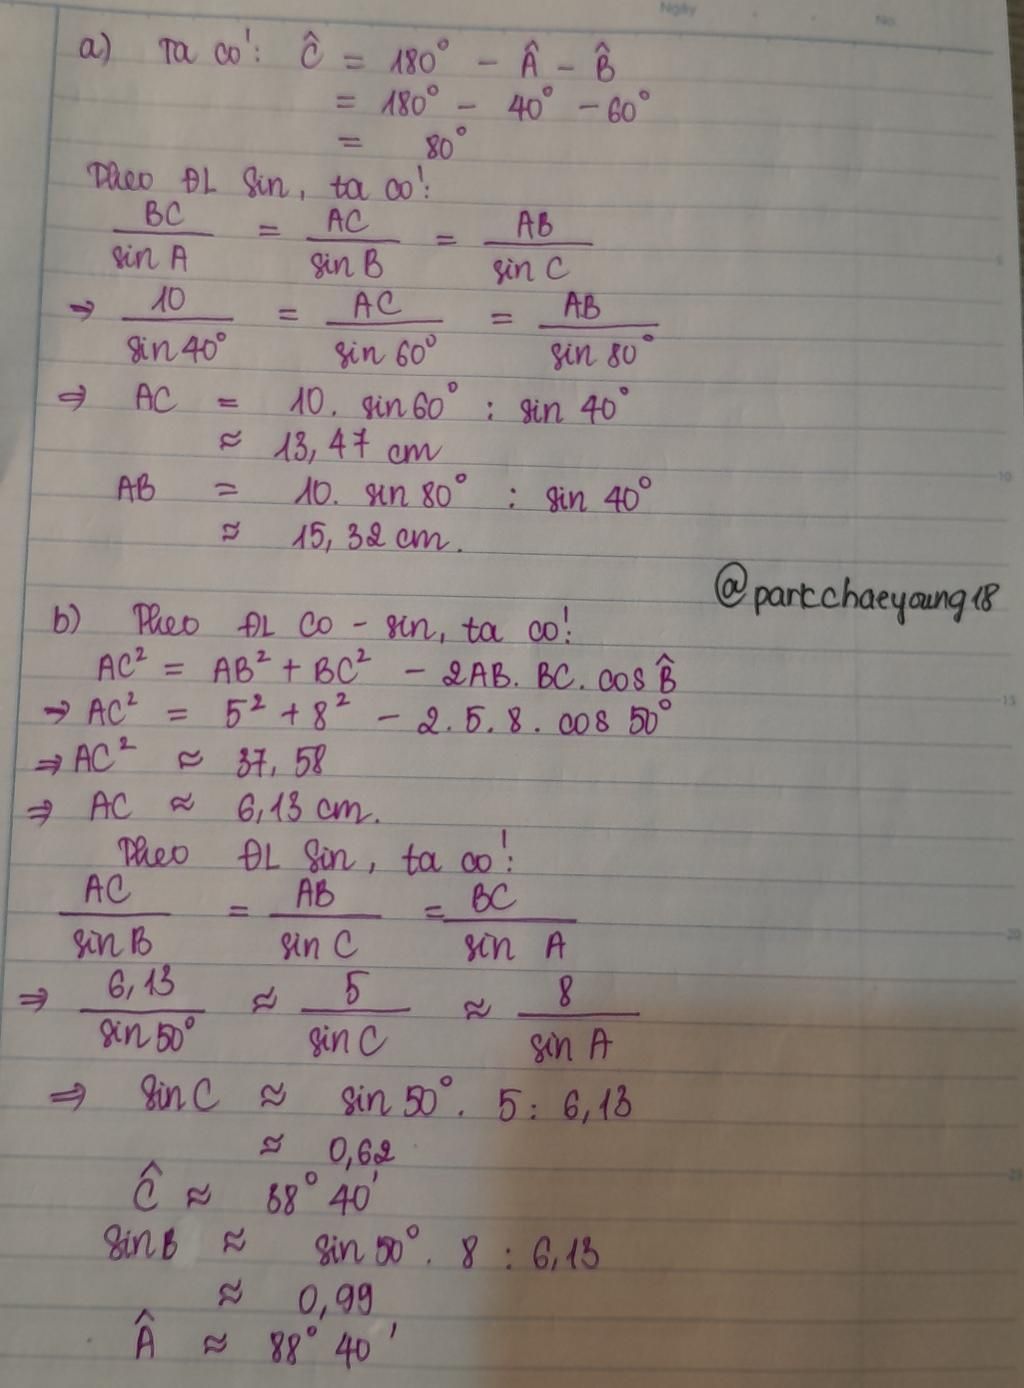 Ngày No.
a) Ta có: Ĉ = 180° - Â - B̂
= 180° - 40° - 60°
= 80°
Theo ĐL Sin, ta có:
BC/sin A = AC/sin B = AB/sin C
→ 10/sin 40° = AC/sin 60° = AB/sin 80°
⇒ AC = 10. sin 60° : sin 40°
≈ 13,47 cm
AB = 10. sin 80° : sin 40°
≈ 15,32 cm.
@partcchaeyoung18
b) Theo ĐL CO - sin, ta có:
AC² = AB² + BC² - 2AB. BC. cos B̂
→ AC² = 5² + 8² - 2.5.8. cos 50°
⇒ AC² ≈ 37,58
⇒ AC ≈ 6,13 cm.
Theo ĐL Sin, ta có:
AC/sin B = AB/sin C = BC/sin A
⇒ 6,13/sin 50° ≈ 5/sin C ≈ 8/sin A
⇒ Sin C ≈ sin 50°. 5 : 6,13
≈ 0,62
Ĉ ≈ 38° 40'
Sin B ≈ sin 50°. 8 : 6,13
≈ 0,99
Â ≈ 88° 40'